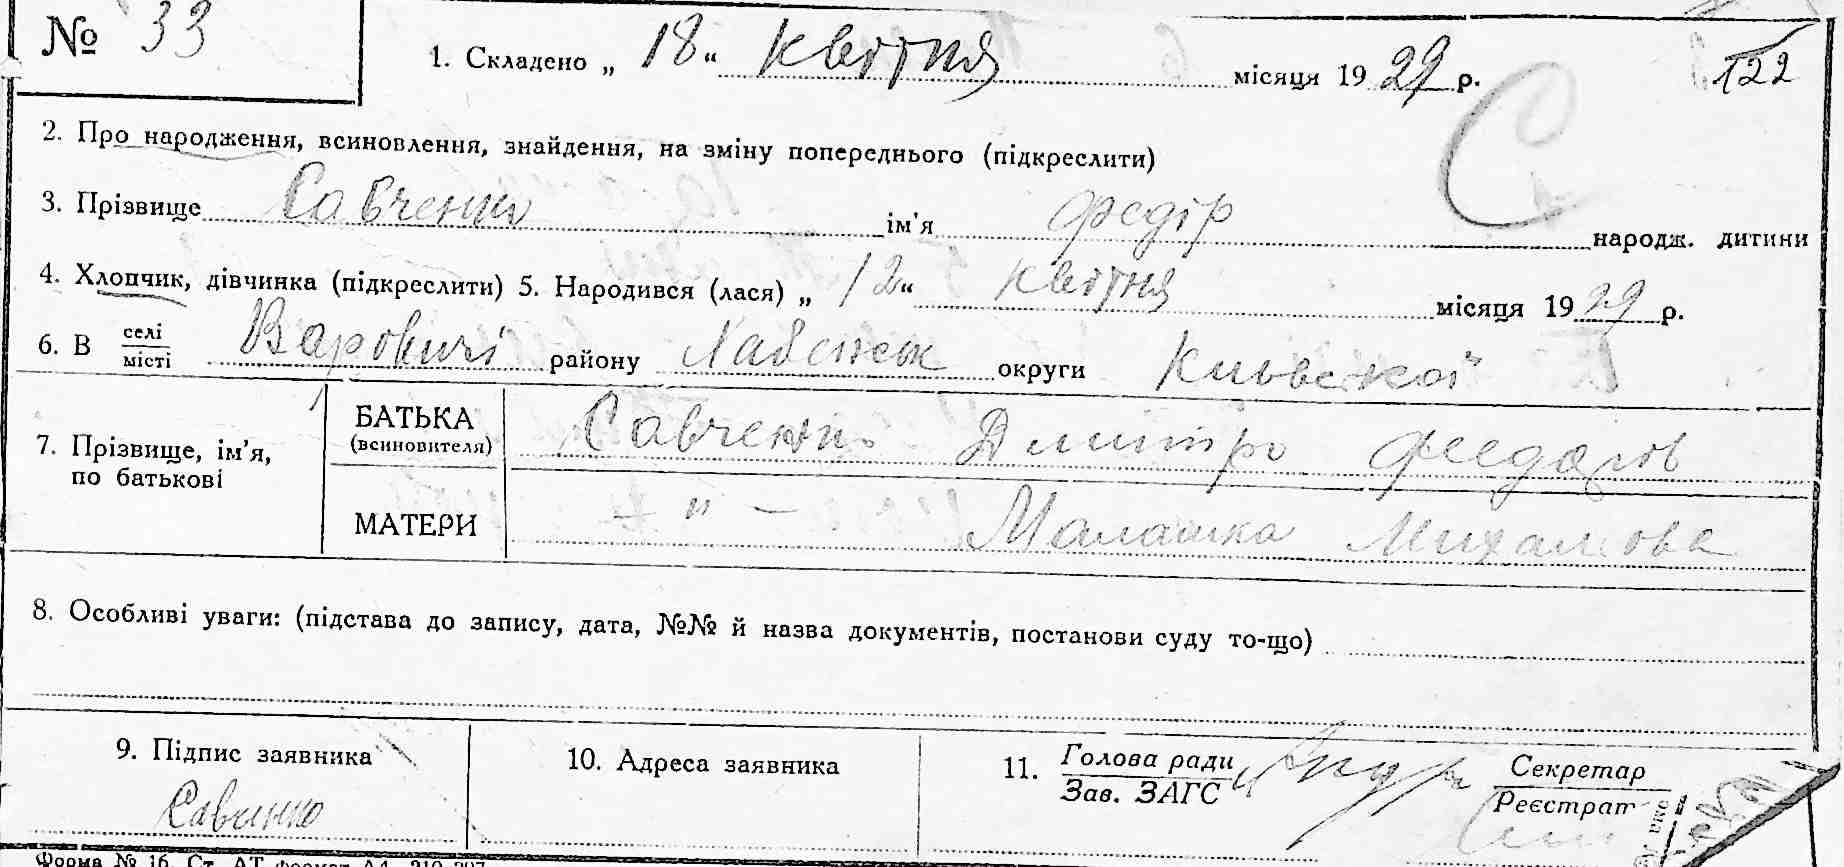 № 33
1. Складено „ 18 “ квітня місяця 1929 р. 122
С
2. Про народження, всиновлення, знайдення, на зміну попереднього (підкреслити)
3. Прізвище Савченко ім'я Федір народж. дитини
4. Хлопчик, дівчинка (підкреслити) 5. Народився (лася) „ 12 “ квітня місяця 1929 р.
6. В селі/місті Варовичі району Хабенськ округи Київської
7. Прізвище, ім'я, по батькові
БАТЬКА (всиновителя) Савченко Дмитро Федоров
МАТЕРИ - " - Малашка Михайлова
8. Особливі уваги: (підстава до запису, дата, №№ й назва документів, постанови суду то-що)
9. Підпис заявника 10. Адреса заявника 11. Голова ради/Зав. ЗАГС Секретар/Реєстрат
Савченко
Форма № 16. Ст. АТ формат А4, 210×297